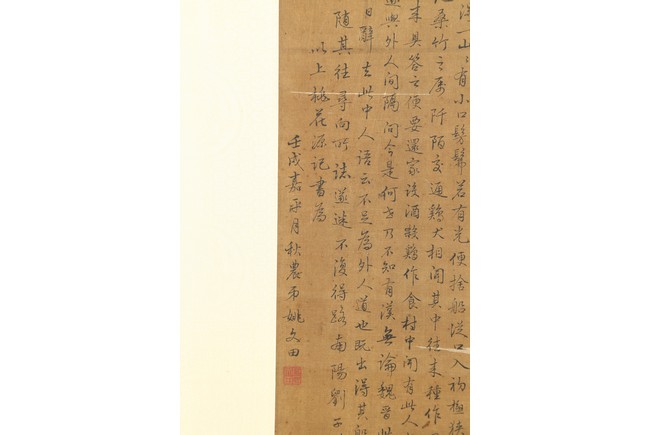 一山〻有小口髣髴若有光便捨船從口入初極狹
桑竹之屬阡陌交通鷄犬相聞其中往來種作
來具答之便要還家設酒殺鷄作食村中聞有此人
與外人間隔問今是何世乃不知有漢無論魏晉此
日辭去此中人語云不足為外人道也既出得其船
隨其往尋向所誌遂迷不復得路南陽劉子
以上桃花源記書為
壬戌嘉平月秋農弟姚文田